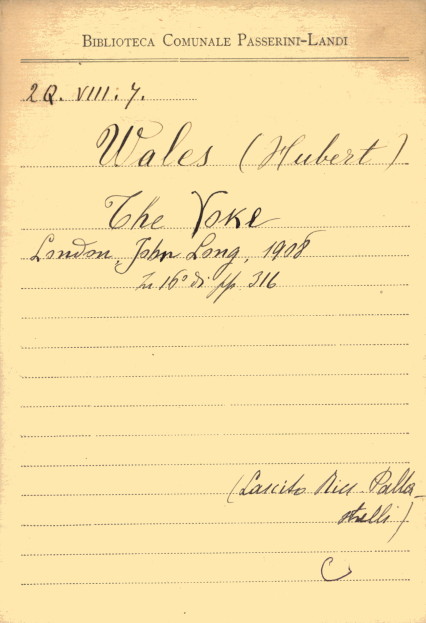 BIBLIOTECA COMUNALE PASSERINI-LANDI
2Q. VIII. 7.
Wales (Hubert)
The Yoke
London, John Long, 1908
In 16° di pp. 316
(Lascito Ricc. Palla-
stelli)
C